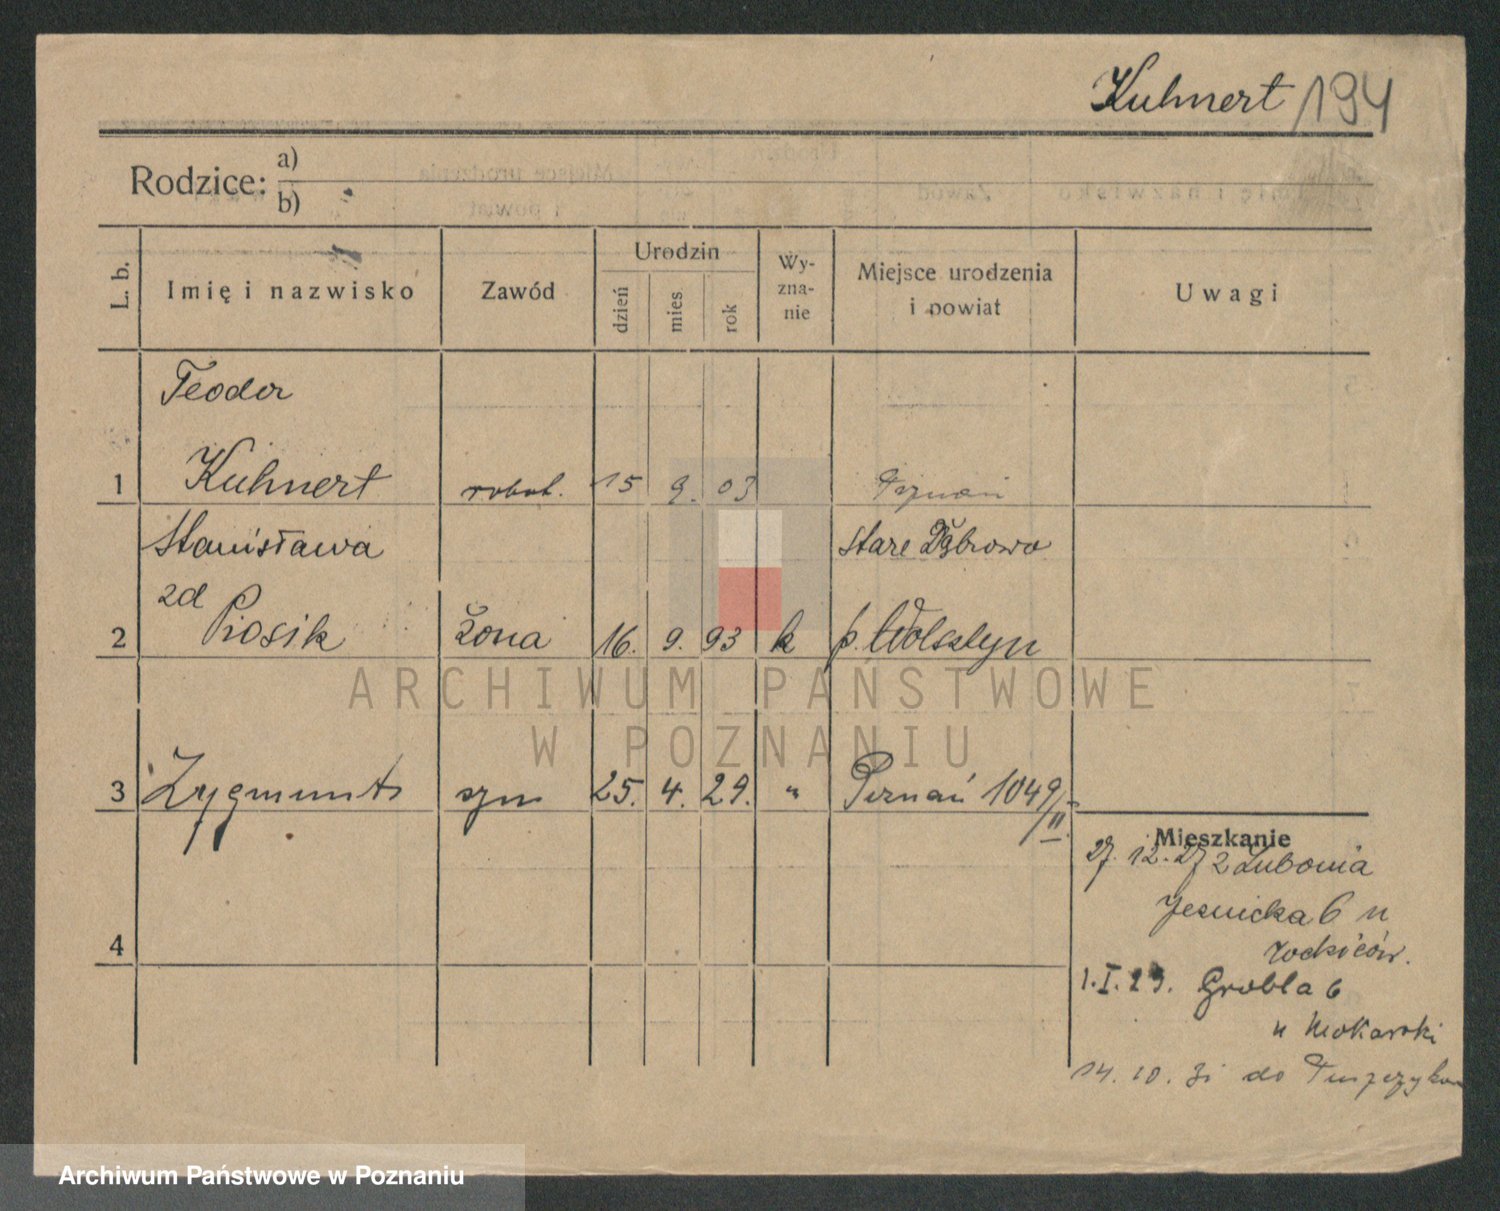 Kuhnert 194
Rodzice: a)
b)
L. b.
Imię i nazwisko
Zawód
Urodzin
dzień
mies
rok
Wy-
zna-
nie
Miejsce urodzenia
i powiat
Uwagi
Teodor
1 Kuhnert robot. 15 9. 03 Poznań
Stanisława Stare Dąbrowo
zd
2 Piosik żona 16. 9. 93 k p. Wolsztyn
3 Zygmunt syn 25. 4. 29. " Poznań 1049/
II.
Mieszkanie
27. 12. 27 z Lubonia
6 u
rodziców.
4
1. I. 29. Grobla 6
u Mokarski
14. 10. 31 do Puszczykowa
ARCHIWUM PAŃSTWOWE
W POZNANIU
Archiwum Państwowe w Poznaniu